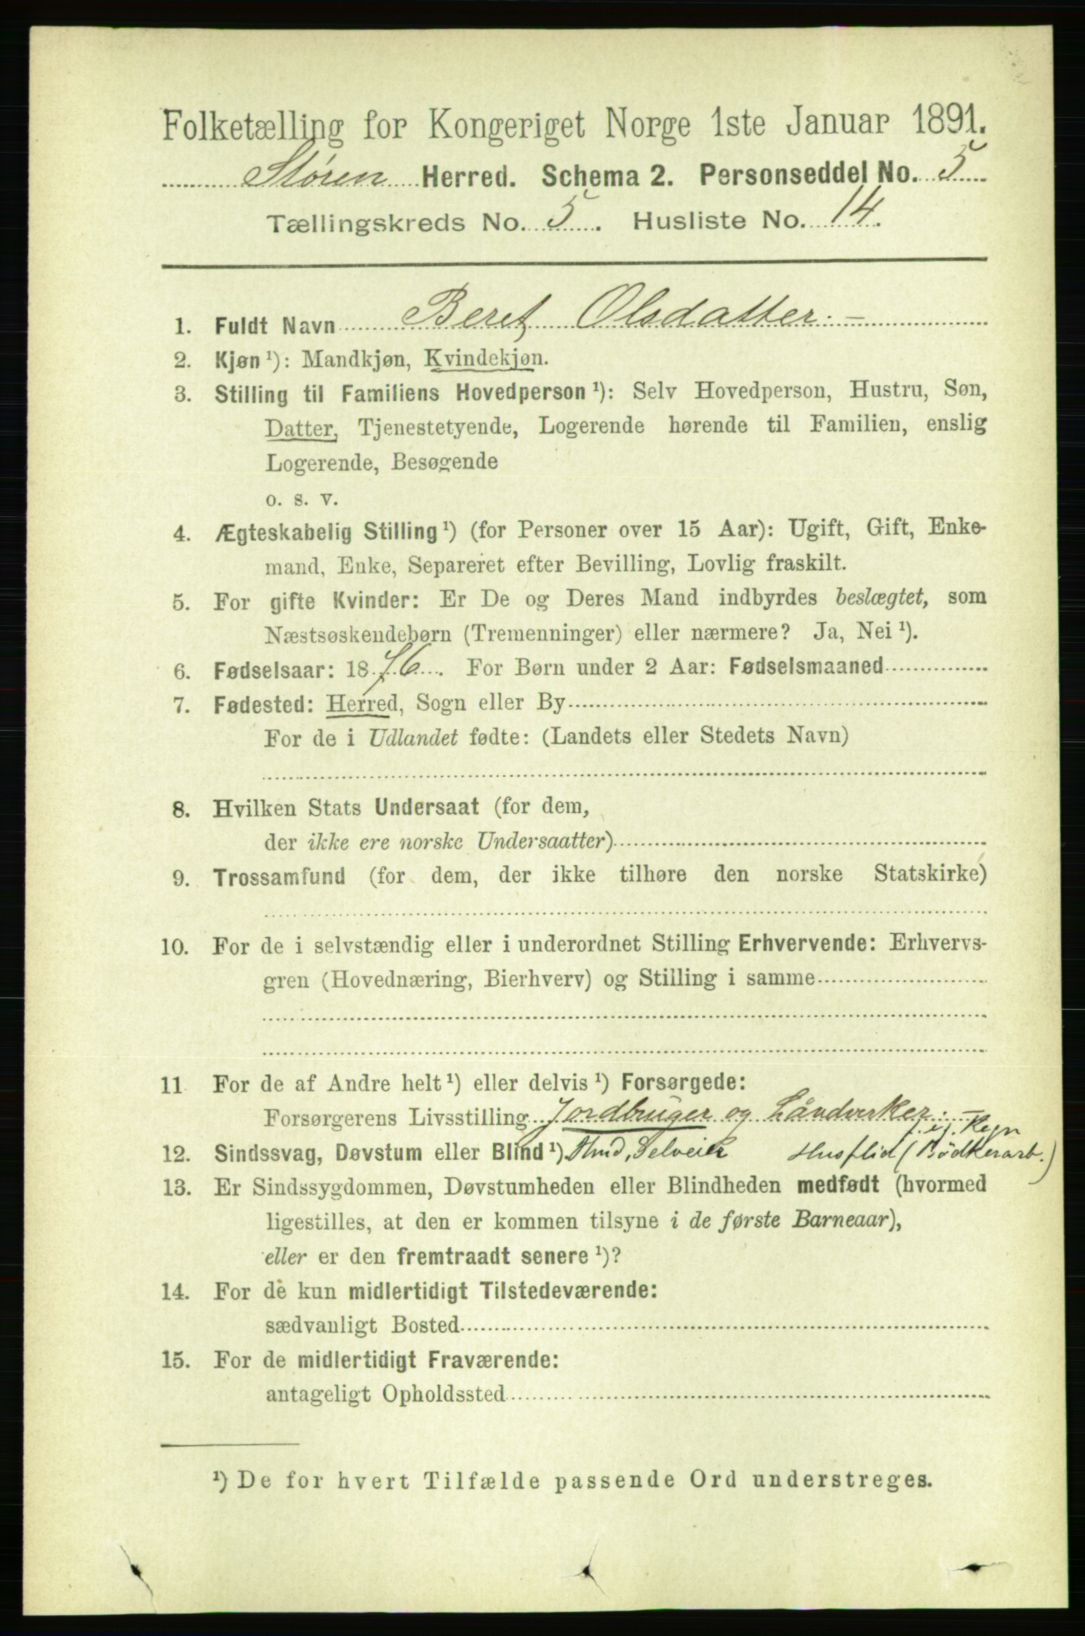 Folketælling for Kongeriget Norge 1ste Januar 1891.
Støren Herred. Schema 2. Personseddel No. 5
Tællingskreds No. 5. Husliste No. 14.
1. Fuldt Navn Beret Olsdatter. –
2. Kjøn ¹): Mandkjøn, Kvindekjøn.
3. Stilling til Familiens Hovedperson ¹): Selv Hovedperson, Hustru, Søn,
Datter, Tjenestetyende, Logerende hørende til Familien, enslig
Logerende, Besøgende
o. s. v.
4. Ægteskabelig Stilling ¹) (for Personer over 15 Aar): Ugift, Gift, Enke-
mand, Enke, Separeret efter Bevilling, Lovlig fraskilt.
5. For gifte Kvinder: Er De og Deres Mand indbyrdes beslægtet, som
Næstsøskendebørn (Tremenninger) eller nærmere? Ja, Nei ¹).
6. Fødselsaar: 1876. For Børn under 2 Aar: Fødselsmaaned
7. Fødested: Herred, Sogn eller By
For de i Udlandet fødte: (Landets eller Stedets Navn)
8. Hvilken Stats Undersaat (for dem,
der ikke ere norske Undersaatter)
9. Trossamfund (for dem, der ikke tilhøre den norske Statskirke)
10. For de i selvstændig eller i underordnet Stilling Erhvervende: Erhvervs-
gren (Hovednæring, Bierhverv) og Stilling i samme
11 For de af Andre helt ¹) eller delvis ¹) Forsørgede:
Forsørgerens Livsstilling Jordbruger og Håndverker. –
12. Sindssvag, Døvstum eller Blind ¹). Selveier Husflid (Bødkerarb.)
13. Er Sindssygdommen, Døvstumheden eller Blindheden medfødt (hvormed
ligestilles, at den er kommen tilsyne i de første Barneaar),
eller er den fremtraadt senere ¹)?
14. For de kun midlertidigt Tilstedeværende:
sædvanligt Bosted
15. For de midlertidigt Fraværende:
antageligt Opholdssted
¹) De for hvert Tilfælde passende Ord understreges.